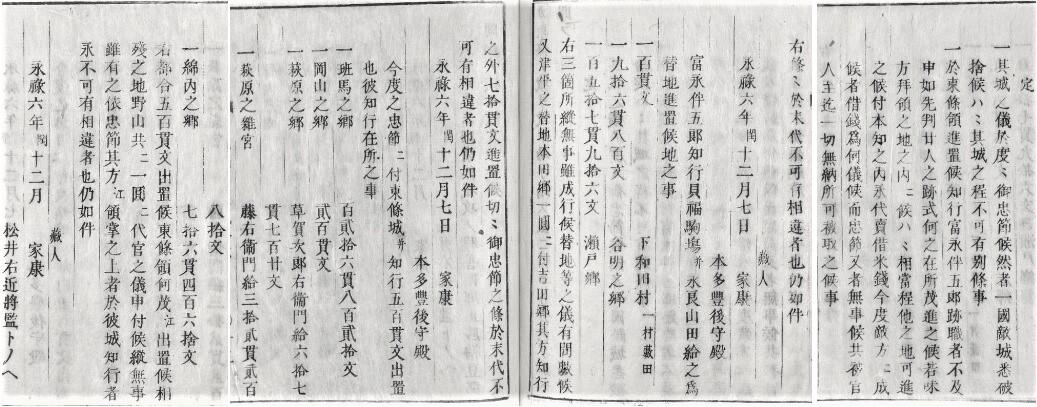 定
一其城之儀於度々御忠節候然者一國敵城悉破
捨候ハヽ其城之程不可有別條事
一於東條領進置候知行富永伴五郎跡職者不及
申如先判廿人之跡式何之在所茂進之候若味
方拜領之地之内ニ候ハヽ相當程他之地可進
之候付本知之内永代賣借米錢今度敵方ニ成
候者借錢為何儀候而忠節又者無事候共被官
人主迄一切無納所可被取之候事
右條々於末代不可有相違者也仍如件
藏人
永祿六年閏十二月日 家康
本多豊後守殿
富永伴五郎知行貝福駒塲并永良山田給之為
替地進置候地之事
一百貫文 下和田村一村藏田
一九拾六貫八百文 谷明之郷
一百五拾七貫九拾六文 瀬戸郷
右三箇所縱無事雖成行候替地等之儀有間敷候
又津平之替地本田郷一圓ニ付吉田郷其方知行
之外七拾貫文進置候切々御忠節之條於末代不
可有相違者也仍如件
永祿六年閏十二月七日 家康
本多豊後守殿
今度之忠節ニ付東條城并知行五百貫文出置
也彼知行在所之事
一班馬之郷 百貳拾六貫八百貳拾文
一岡山之郷 貳百貫文
一萩原之郷 草賀次郎右衞門給六拾七
貫七百廿文
一萩原之雜宮 藤右衞門給三拾貳貫貳百
八拾文
一綿内之郷 七拾六貫四百六拾文
右都合五百貫文出置候東條領何茂江出置候相
殘之地野山共ニ一圓ニ代官之儀申付候縱無事
雖有之依忠節其方江領掌之上者於彼城知行者
永不可有相違者也仍如件
藏人
永祿六年閏十二月 家康
松井右近將監トノヘ